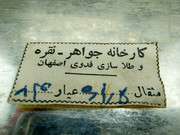 کارخانه جواهر - نقره
و طلا سازی فدوی اصفهان
مثقال عیار ۸۴۰